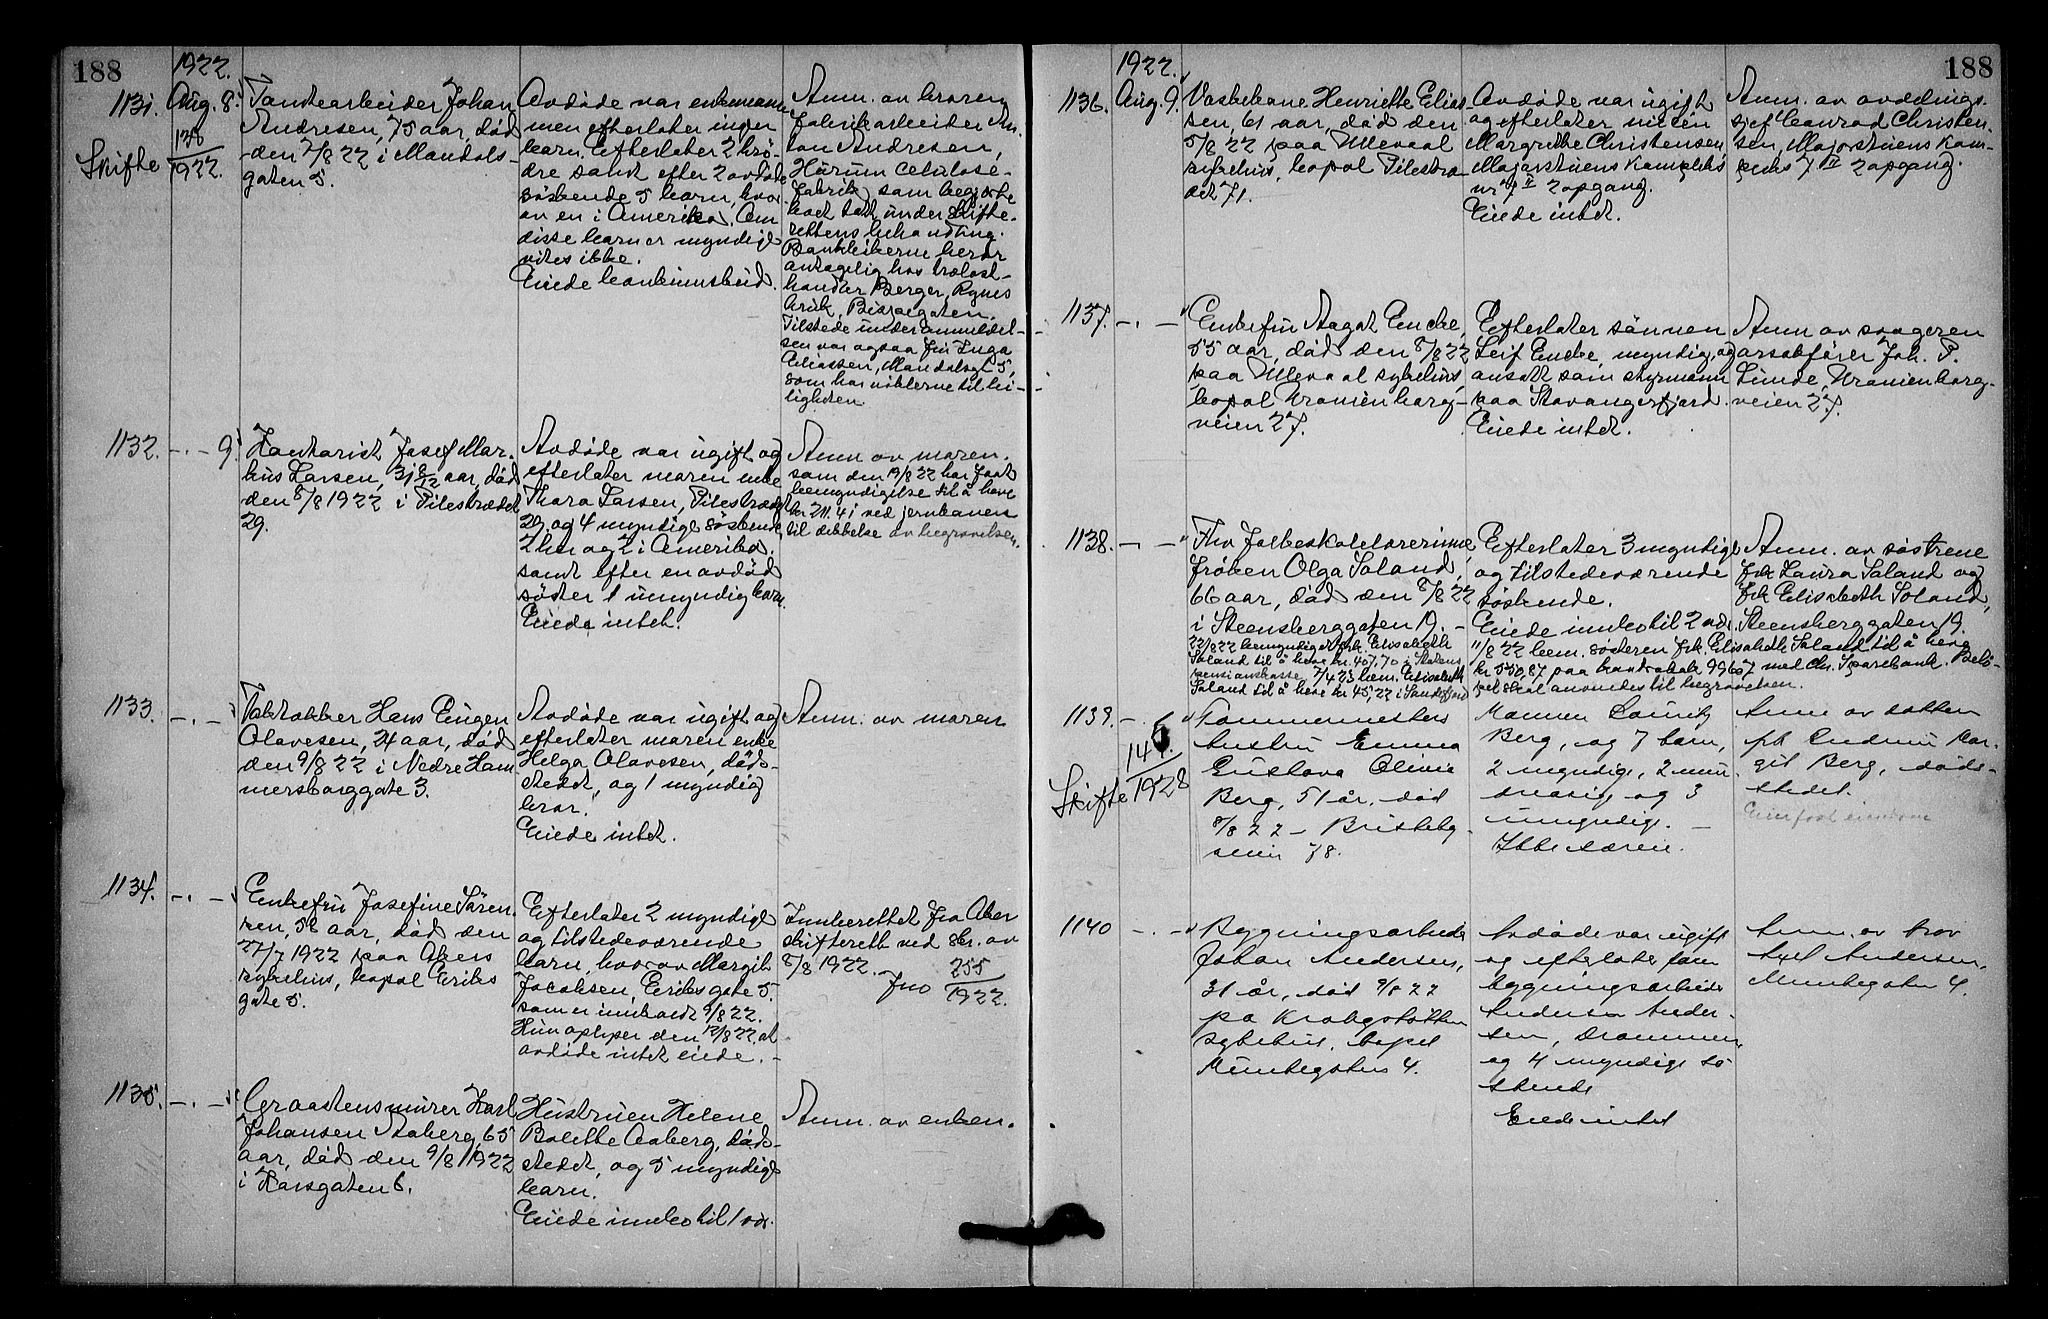 188
1922.
1131.
Aug. 8.
Skifte 138/1922.
Johan
Andresen, 75 aar, död
den 7/8 22 i Mandals-
gaten 5.
Avdöde var enkemann
men efterlater ingen
barn. Efterlater 2 brö-
dre samt efter 2 avdöde
söskende 5 barn, hvor-
av en i Amerika. Om
disse barn er myndige
vites ikke.
Eiede bankinnskud.
Anm. av broren
Fabrikarbeider An-
ton Andresen,
Hurum Celulose-
fabrik, som begjærte
boet tatt under skifte-
rettens behandling.
Bankbökerne beror
antagelig hos trælast-
handler Berger,
Bispegaten.
Tilstede under anmeldel-
sen var ogsaa fru Inga
Eliassen, Mandalsgt 5,
som har nöklerne til lei-
ligheten.
1132.
-.- 9.
Kontorist Josef Mar-
hus Larsen, 31 8/12 aar, död
den 8/8 1922 i Pilestrædet
29.
Avdöde var ugift og
efterlater moren enke
Thora Larsen, Pilestrædet
29, og 4 myndige söskende,
2 her og 2 i Amerika,
samt efter en avdöd
söster 1 umyndig barn.
Eiede intet.
Anm. av moren.
som den 19/8 22 har faat
bemyndigelse til å heve
kr 211.41 ved jernbanen
til dekkelse av begravelsen.
1133.
-.-
Hans Eugen
Olavesen, 24 aar, död
den 9/8 22 i Nedre Ham-
mersborggate 3.
Avdöde var ugift og
efterlater moren enke
Helga Olavesen, döds-
stedet, og 1 myndig
bror.
Eiede intet.
Anm. av moren
1134.
-.-
Enkefru Josefine Sören-
sen, 58 aar, död den
27/7 1922 paa Akers
sykehus, bopal Eriks
gate 5.
Efterlater 2 myndige
og tilstedeværende
barn, hvorav Margit
Jacobsen, Eriksgate 5.
som er innkaldt 9/8 22.
Hun oplyser den 12/8 22 at
avdöde intet eiede.-
Innberettet fra Aker
skifterett ved skr. av
8/8 1922.
Jno 255/1922.
1135.
-.-
Graastensmurer Karl
Johansen Aaberg, 65
aar, död den 9/8 1922
i Korsgaten 6.
Hustruen Helene
Bolette Aaberg, döds-
stedet, og 5 myndige
barn.
Eiede innbo til 1 vær.
Anm. av enken.
188
1922.
1136.
Aug. 9.
Vaskekone Henriette Elias-
sen, 61 aar, död den
5/8 22 paa Ullevaal
sykehus, bopal Pilestræ-
det 71.
Avdöde var ugift
og efterlater niesen
Margrethe Christensen
Majorstuens Kompleks
nr 7 II 2 opgang.
Eiede intet.
Anm. av avdelings-
sjef Conrad Christen-
sen, Majorstuens Kom-
pleks 7 II 2 opgang.
1137.
-.-
Enkefru Aagot Encke,
55 aar, död den 8/8 22
paa Ullevaal sykehus,
bopal Uranienborg-
veien 27.
Efterlater sönnen
Leif Encke, myndig, og
ansatt som styrmann
paa Stavangerfjord.
Eiede intet.
Anm av svogeren
orsakförer Joh. P.
Lunde, Uranienborg-
veien 27.
1138.
-.-
Fhv folkeskolelærerinne
fröken Olga Soland,
66 aar, död den 8/8 22
i Steensberggaten 19.-
22/8 22 bemyndiget frk. Elisabeth
Soland til å heve kr. 407,70 i Statens
pensjonskasse. 7/4 23 bem. Elisabeth
Soland til å heve kr 45,22 i Sandefjord
Efterlater 3 myndige
og tilstedeværende
söskende.
Eiede innbo til 2 vær.
11/8 22 bem. sösteren frk. Elisabeth Soland til å heve
kr 550,87 paa bankbok 99607 med Chr. Sparebank. Belö-
pet skal anvendes til begravelsen.
Anm. av söstrene
frk Laura Soland og
frk Elisabeth Soland,
Steensberggaten 19.
1139.
-.-
Skifte 146/1928
Tømmermesters
hustru Emma
Gustava Olivia
Berg, 51 år, död
8/8 22 - Briskeby-
veien 78.
Mannen Lauritz
Berg, og 7 barn,
2 myndige, 2 min-
dreårige og 3
umyndige.-
Anm av datter
frk Gudrun Mar-
git Berg, døds-
stedet.
Eier fast eiendom
1140
-.-
Bygningsarbeider
Johan Andersen,
31 år, død 9/8 22
på Krohgstøtten
sykehus, bopel
Munkegaten 4.
Avdøde var ugift
og efterlater faren
bygningsarbeider
Anders Ander-
sen, Drammen,
og 4 myndige sø-
skende
Eiede intet
Anm. av bror
Axel Andersen,
Munkegaten 4.